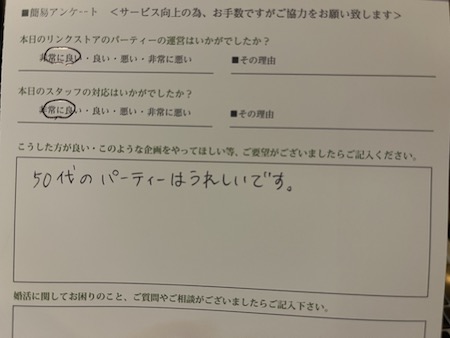 ■簡易アンケート ＜サービス向上の為、お手数ですがご協力をお願い致します＞
本日のリンクストアのパーティーの運営はいかがでしたか？
非常に良い・良い・悪い・非常に悪い ■その理由
本日のスタッフの対応はいかがでしたか？
非常に良い・良い・悪い・非常に悪い ■その理由
こうした方が良い・このような企画をやってほしい等、ご要望がございましたらご記入ください。
50代のパーティーはうれしいです。
婚活に関してお困りのこと、ご質問やご相談がございましたらご記入下さい。